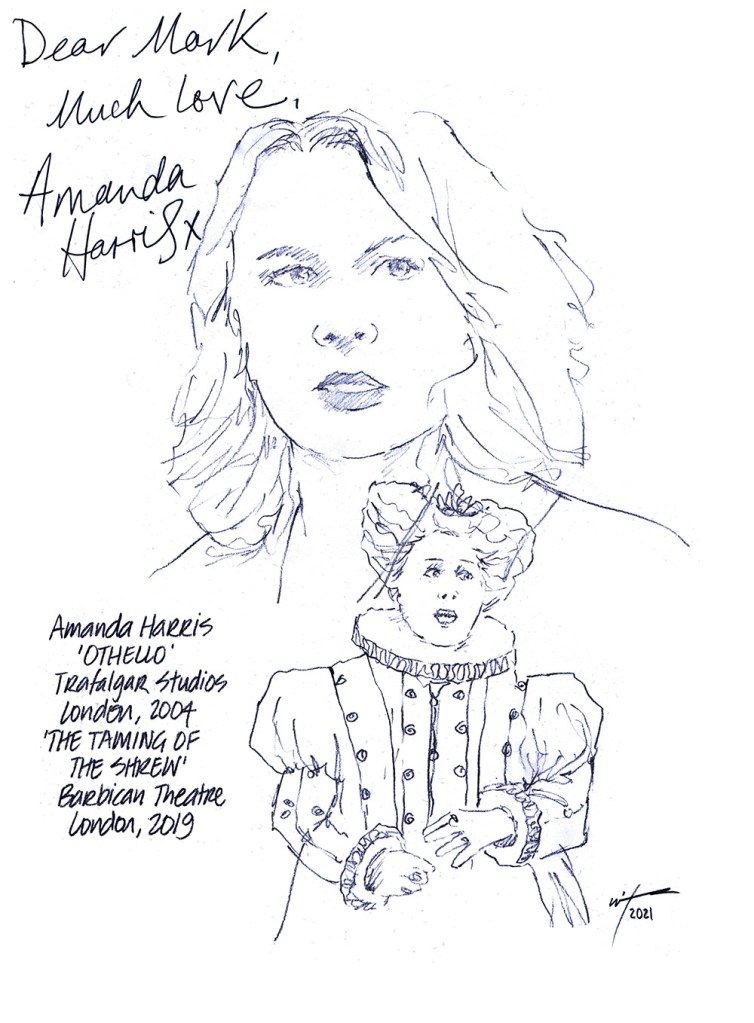 Dear Mark,
Much Love.
Amanda
Harris x
Amanda Harris
'OTHELLO'
Trafalgar Studios
London, 2004
'THE TAMING OF
THE SHREW'
Barbican Theatre
London, 2019
2021